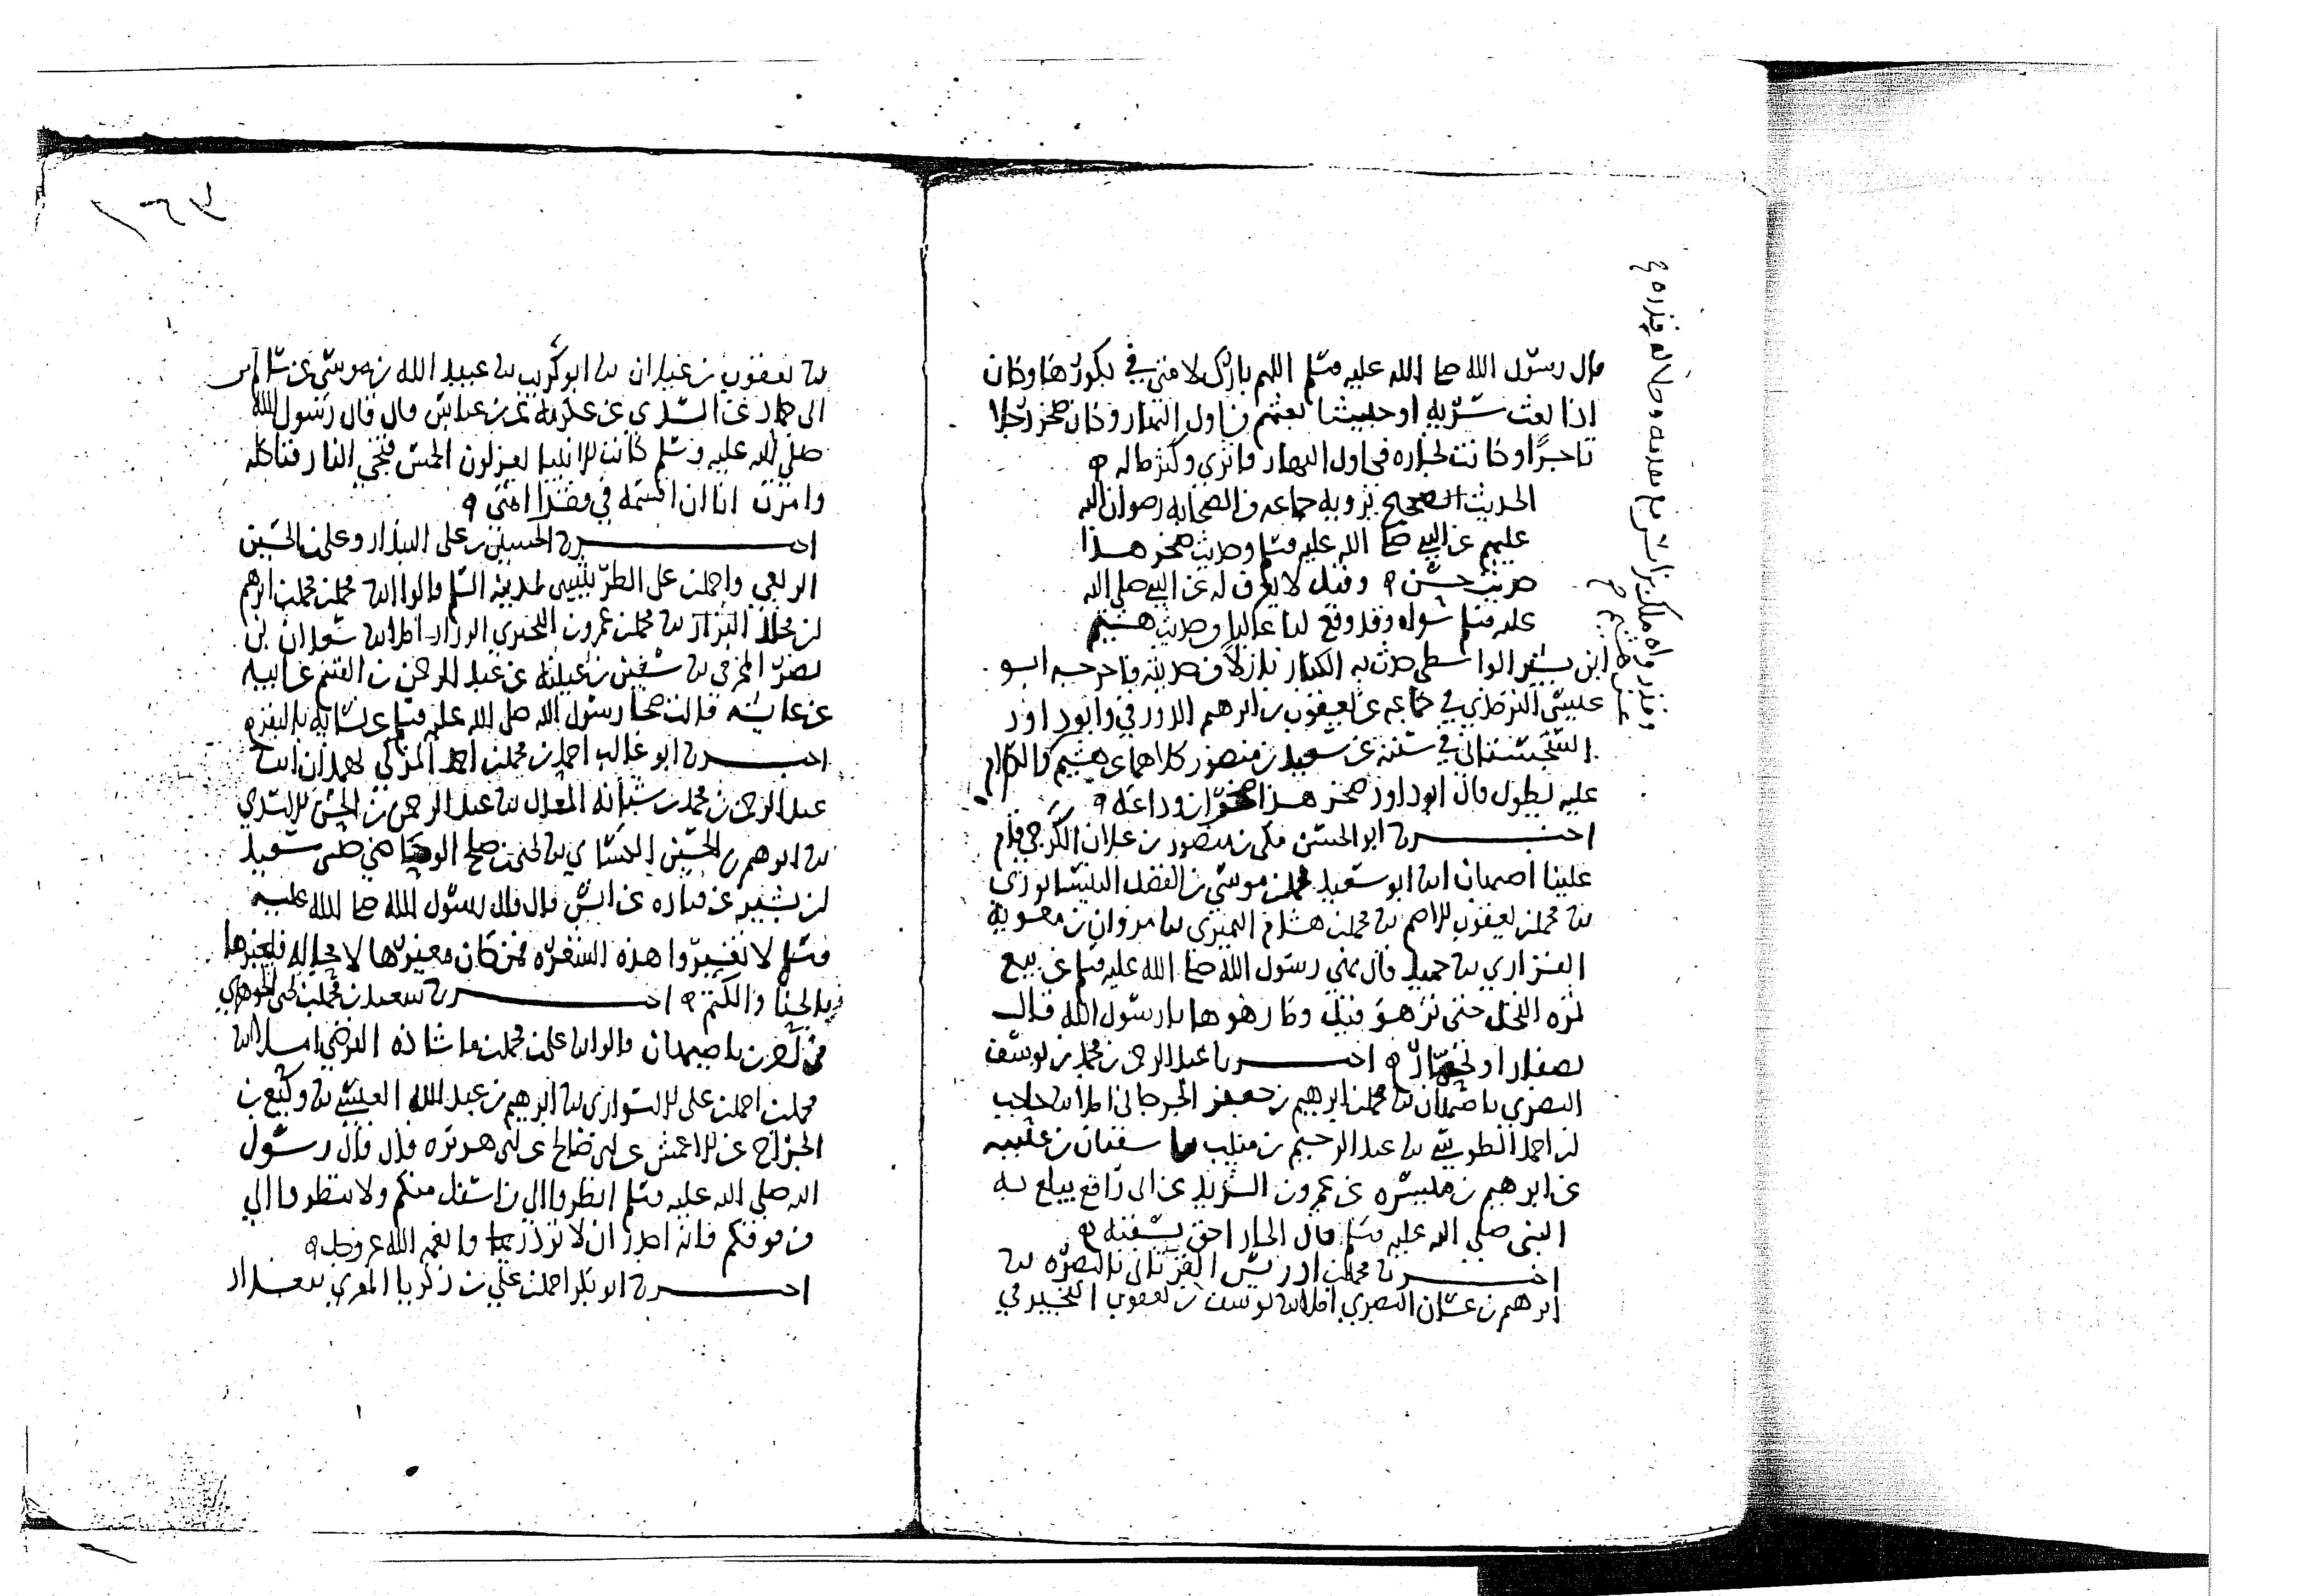 قال رسول الله صلى الله عليه وسلم اللهم بارك لامتي في بكورها وكان
اذا بعث سرية او جيشا بعثهم من اول النهار وكان صخر رجلا
تاجرا وكانت تجارة في اول النهار فاثرى وكثر ماله ه
الحديث الصحيح يرويه جماعه من الصحابه رضوان الله
عليهم عن النبي صلى الله عليه وسلم وحديث صخر هذا
حديث حسن ه وقيل لا يعرف له عن النبي صلى الله
عليه وسلم سواه وقد وقع لنا عاليا من حديث هشيم
ابن بشير الواسطي حدث به الكبار نازلا من حديثه فاخرجه ابو
عيسى الترمذي في جماعه عن يعقوب بن ابرهيم الدورقي وابو داود
السجستاني في سننه عن سعيد بن منصور كلاهما عن هشيم والكلام
عليه يطول قال ابو داود صخر هذا هو ابن وداعة ه
اخبرنا ابو الحسن مكي بن منصور بن علان الكرجي قدم
علينا اصبهان انا ابو سعيد محمد بن موسى بن الفضل النيسابوري
نا محمد بن يعقوب الاصم نا محمد بن هشام النميري نا مروان بن معوية
الفزاري نا حميد قال نهى رسول الله صلى الله عليه وسلم عن بيع
ثمره النخل حتى تزهو قيل وما زهوها يا رسول الله قال
يصفار او يحمار ه اخبرنا عبد الرحمن بن محمد بن يوسف
النصري باصبهان نا محمد بن ابرهيم بن جعفر الجرجاني املا نا حاجب
بن احمد الطوسي نا عبد الرحيم بن منيب نا سفيان بن عيينه
عن ابرهيم بن ميسره عن عمرو بن الشريد عن ابي رافع يبلغ به
النبي صلى الله عليه وسلم قال الجار احق بسقبه ه
اخبرنا محمد بن ادريس بالبصره نا
ابرهيم بن غسان البصري املا نا يوسف بن يعقوب النجيرمي
نا يعقوب بن غيلان نا ابو كريب نا عبيد الله بن موسى عن سالم
ابي حماد عن السدي عن عكرمة عن بن عباس قال قال رسول الله
صلى الله عليه وسلم كانت الانبيا يعزلون الخمس فتجي النار فتاكله
وامرت انا ان اقسمه في فقرا امتي ه
اخبرنا الحسين بن علي البزار وعلي بن الحسين
الربعي واحمد بن علي بمدينه السلم قالوا انا محمد بن محمد بن ابرهيم
بن مخلد البزاز نا محمد بن عمرو بن البختري الرزاز املا نا سعدان بن
نصر المخرمي نا سفين بن عيينة عن عبد الرحمن بن القسم عن ابيه
عن عايشه قالت ضحا رسول الله صلى الله عليه وسلم عن نسايه بالبقره
اخبرنا ابو غالب احمد بن محمد بن احمد المزكي بهمذان انا
عبد الرحمن بن محمد بن شبانه المعدل نا عبد الرحمن بن الحسن الاسدي
نا ابرهيم بن الحسين الكسائي نا يحيى بن صالح الوحاظي حدثني سعيد
بن بشير عن قتاده عن انس قال قال رسول الله صلى الله عليه
وسلم لا تغيروا هذه الشعره فمن كان مغيرها لا محاله فليغيرها
بالحنا والكتم ه اخبرنا سعيد بن محمد بن يحيى الجوهري
باصبهان قالوا نا علي بن محمد بن ماشاذه الفرضي املا انا
محمد بن احمد بن علي الاسواري نا ابرهيم بن عبد الله العبسي نا وكيع بن
الجراح عن الاعمش عن ابي صالح عن ابي هريره قال قال رسول
الله صلى الله عليه وسلم انظروا الى من اسفل منكم ولا تنظروا الى
من فوقكم فانه اجدر ان لا تزدروا نعمه الله عز وجل ه
اخبرنا ابو بكر احمد بن علي بن زكريا المقري ببغداد